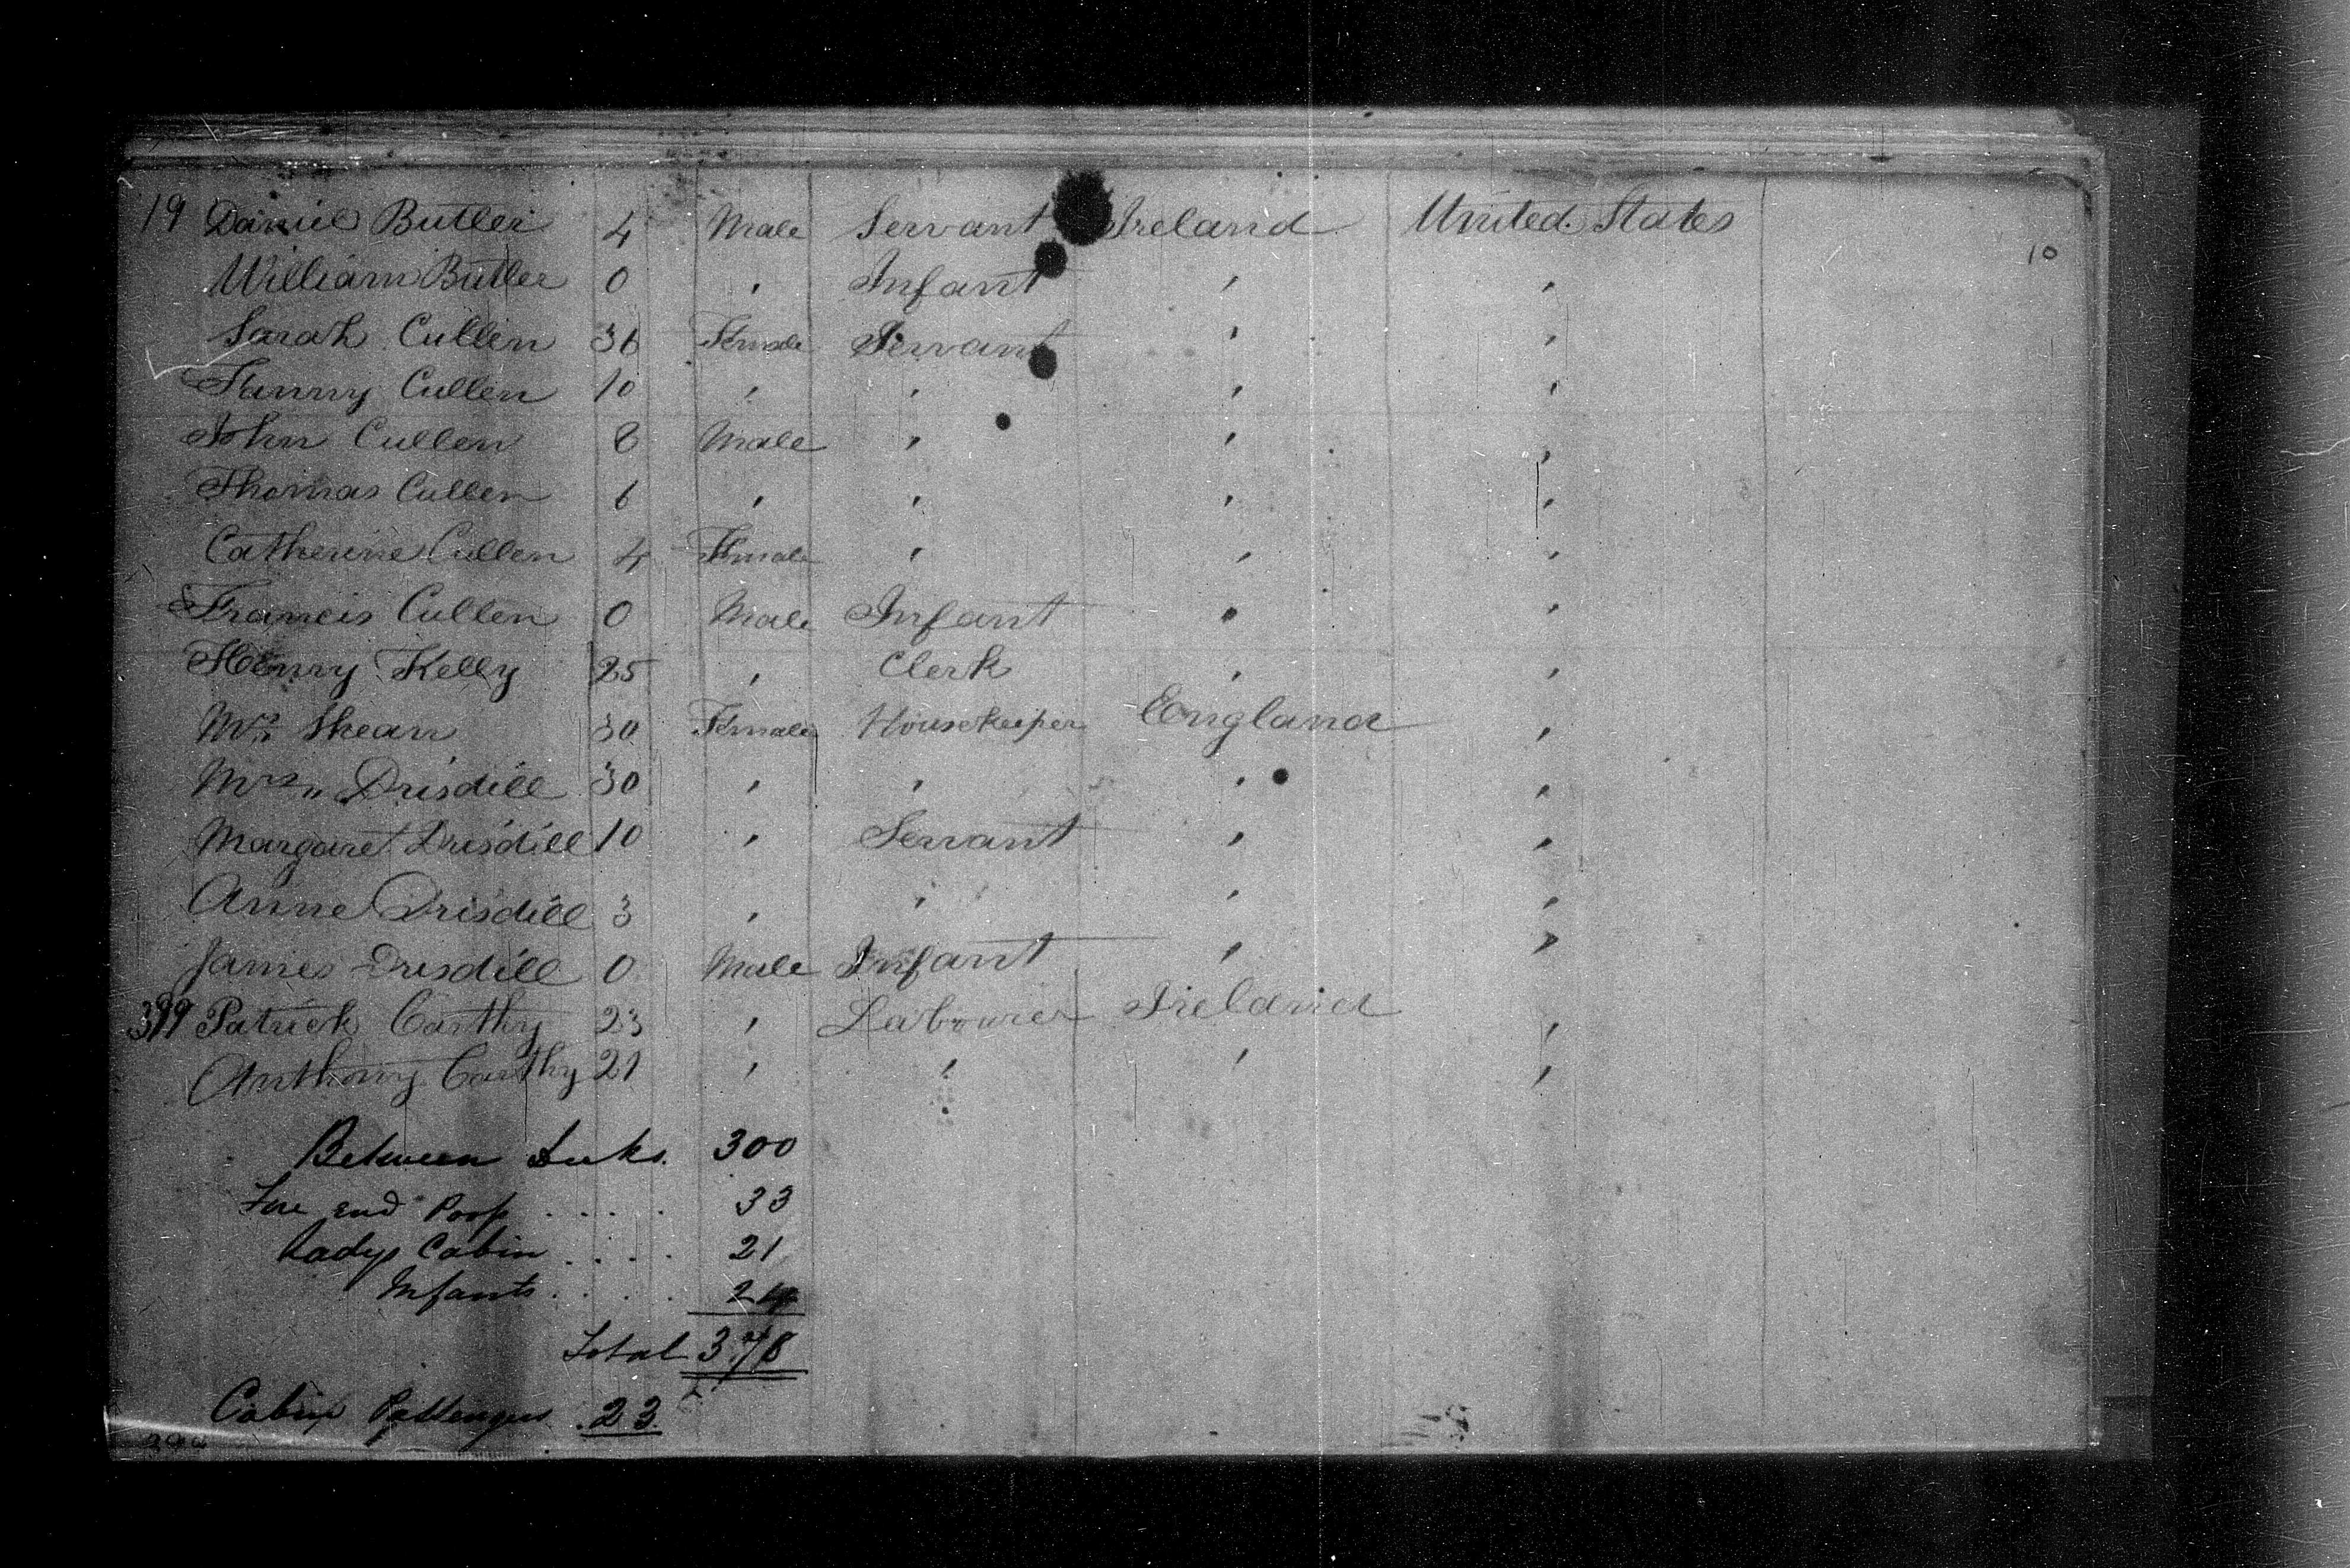 19 Daniel Butler 4 Male Servant Ireland United States
10
William Butler 0 , Infant , ,
Sarah Cullen 36 Female Servant , ,
Fanny Cullen 10 , , , ,
John Cullen 8 Male , , ,
Thomas Cullen 6 , , , ,
Catherine Cullen 4 Female , , ,
Francis Cullen 0 Male Infant , ,
Henry Kelly 25 , Clerk , ,
Mrs Shean 30 Female Housekeeper England ,
Mrs „ Drisdill 30 , , , ,
Margaret Drisdill 10 , Servant , ,
Anne Drisdill 3 , , , ,
James Drisdill 0 Male Infant , ,
399 Patrick Carthy 23 , Labourer Ireland ,
Anthony Carthy 21 , , , ,
Between Decks. 300
Fore End Poop ..... 33
Ladys Cabin .... 21
Infants ..... 24
Total 378
Cabin Passengers . 23